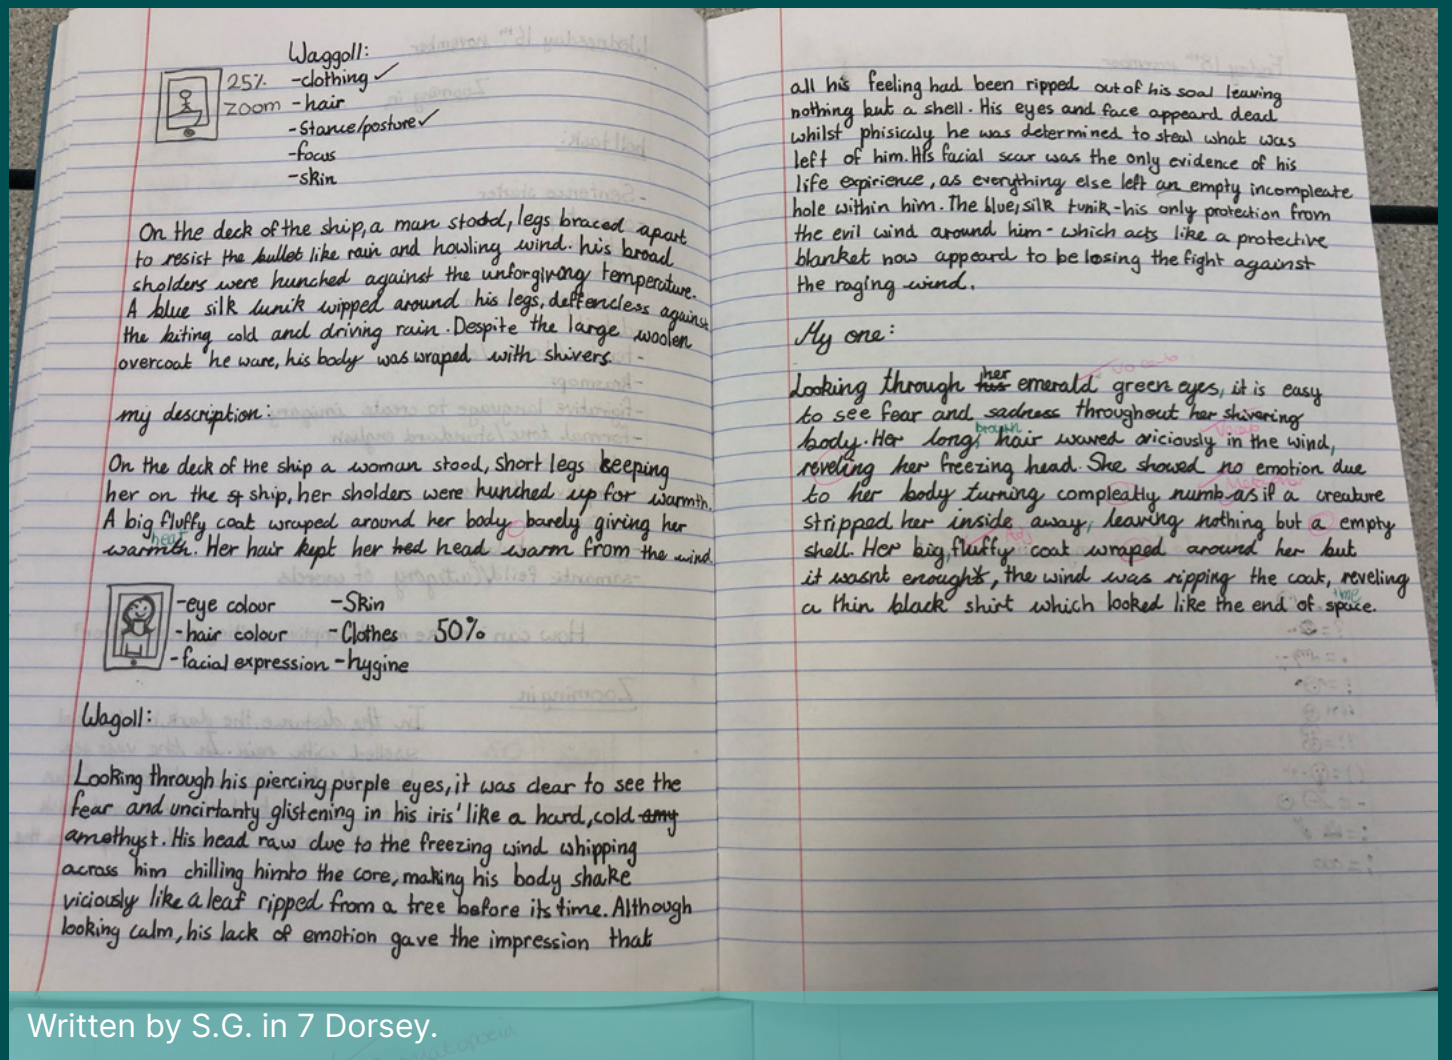 Waggoll:
25%
zoom
-clothing ✓
-hair
-Stance/posture ✓
-focus
-skin
On the deck of the ship, a man stood, legs braced apart
to resist the bullet like rain and howling wind. his broad
sholders were hunched against the unforgiving temperature.
A blue silk tunik wipped around his legs, deffencless against
the biting cold and driving rain. Despite the large woolen
overcoat he ware, his body was wraped with shivers.
my description:
On the deck of the ship a woman stood, short legs keeping
her on the st ship, her sholders were hunched up for warmth.
A big fluffy coat wraped around her body barely giving her
heat
warmth. Her hair kept her hed head warm from the wind
-eye colour -Skin
-hair colour -Clothes 50%
-facial expression -hygine
Wagoll:
Looking through his piercing purple eyes, it was clear to see the
fear and uncirtanty glistening in his iris' like a hard, cold amy
amethyst. His head raw due to the freezing wind whipping
across him chilling him to the core, making his body shake
viciously like a leaf ripped from a tree before its time. Although
looking calm, his lack of emotion gave the impression that
all his feeling had been ripped out of his soal leaving
nothing but a shell. His eyes and face appeard dead
whilst phisicaly he was determined to steal what was
left of him. His facial scar was the only evidence of his
life expirience, as everything else left an empty incompleate
hole within him. The blue, silk tunik - his only protection from
the evil wind around him - which acts like a protective
blanket now appeard to be losing the fight against
the raging wind.
My one:
Vocab
her
Looking through his emerald green eyes, it is easy
to see fear and sadness throughout her shivering
brown
Vocab
body. Her long, hair waved viciously in the wind,
reveling her freezing head. She showed no emotion due
Metaphor
to her body turning compleatly numb as if a creature
stripped her inside away, leaving nothing but a empty
Adj
shell. Her big, fluffy coat wraped around her but
it wasnt enought, the wind was ripping the coat, reveling
time
a thin black shirt which looked like the end of space.
Written by S.G. in 7 Dorsey.